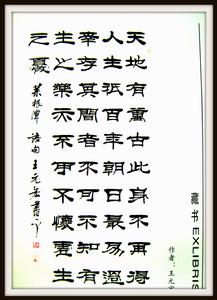 天地有萬古此身不再得
人生祇百年朝日最易過
幸存其間者不可不知有
生之樂亦不可不懷虛生
之憂
菜根潭 語句 王元
藏书 EXLIBRIS
作者：王元